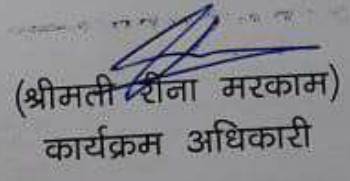 (श्रीमती रीना मरकाम)
कार्यक्रम अधिकारी